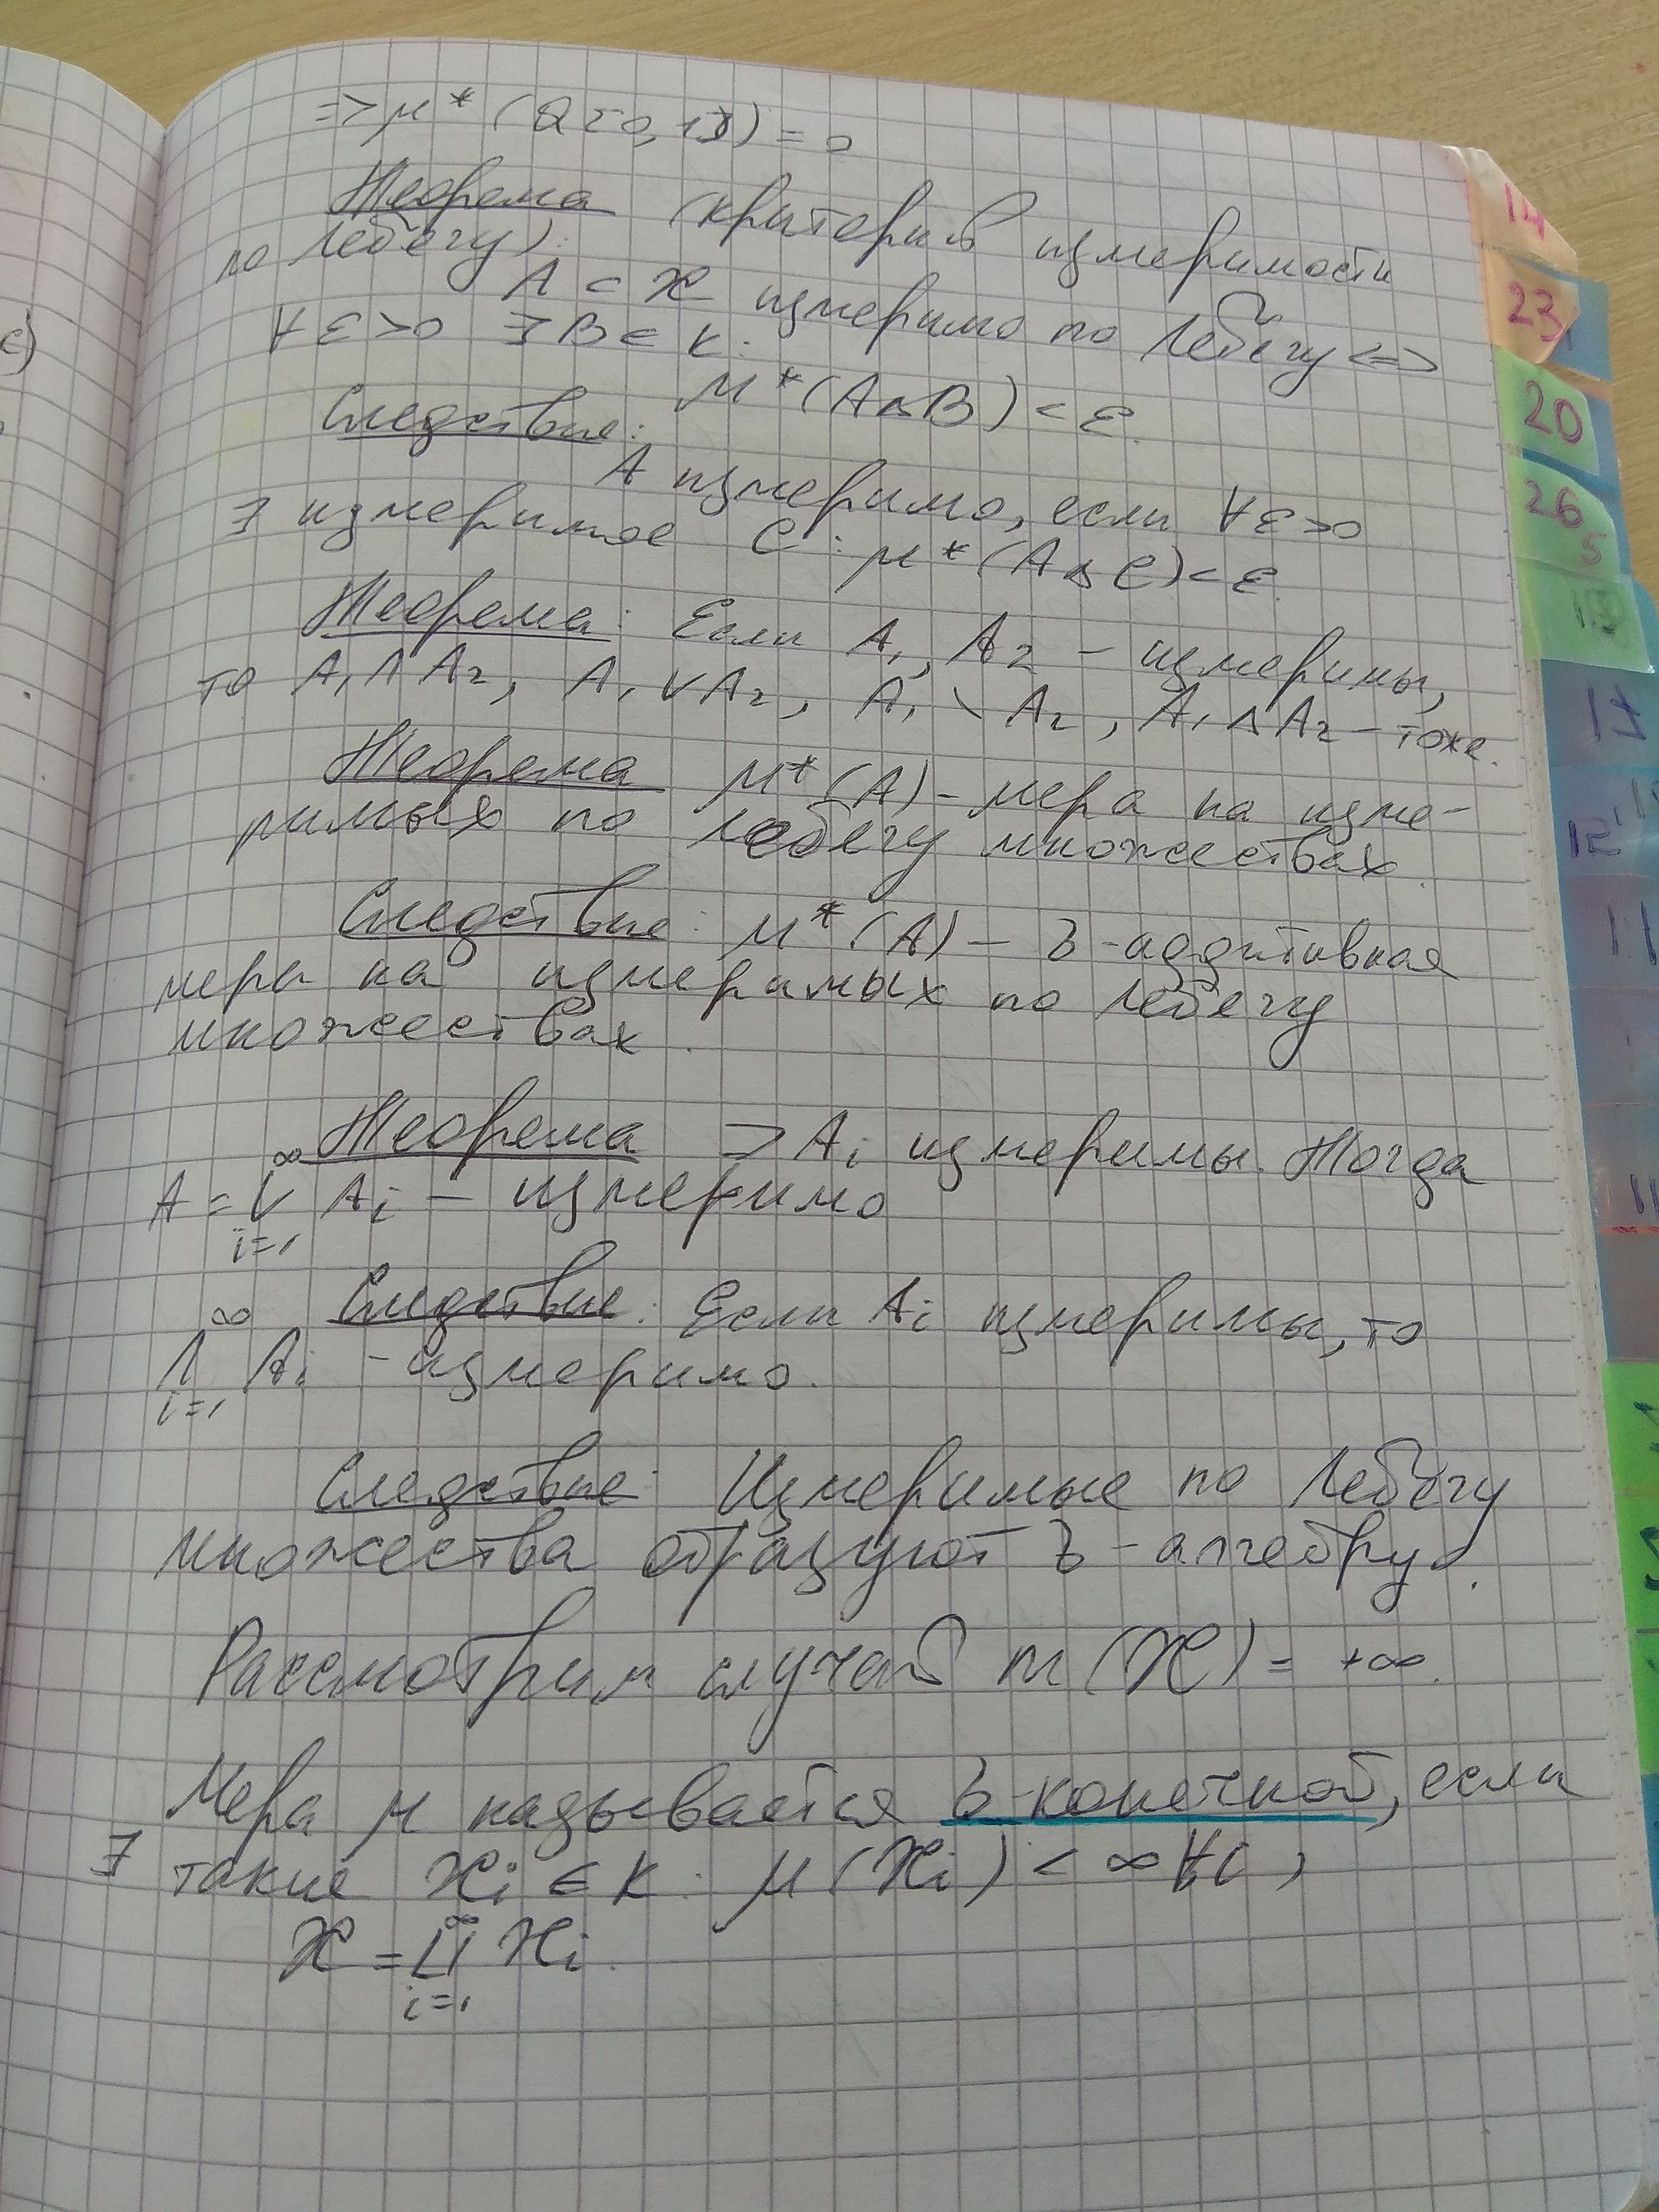 => μ* (Q [0,1]) = 0
Теорема (критерий измеримости
по Лебегу):
A ⊂ X измеримо по Лебегу <=>
∀ε>0 ∃B∈K:
μ*(A△B)<ε.
Следствие:
A измеримо, если ∀ε>0
∃ измеримое C: μ*(A△C)<ε.
Теорема: Если A₁, A₂ - измеримы,
то A₁∧A₂, A₁∨A₂, A₁\A₂, A₁△A₂ - тоже.
Теорема μ*(A) - мера на изме-
римых по Лебегу множествах.
Следствие: μ*(A) - σ-аддитивная
мера на измеримых по Лебегу
множествах.
Теорема ⊃ Aᵢ измеримы. Тогда
A = ∞ ∨ i=1 Aᵢ - измеримо
Следствие: Если Aᵢ измеримы, то
∞ ∧ i=1 Aᵢ - измеримо.
Следствие: Измеримые по Лебегу
множества образуют σ-алгебру.
Рассмотрим случай m(X) = +∞.
Мера μ называется σ-конечной, если
∃ такие Xᵢ ∈ K: μ(Xᵢ) < ∞ ∀i,
X = ∞ ⊔ i=1 Xᵢ.
14
23
20
26
5
13
17
12
11
11